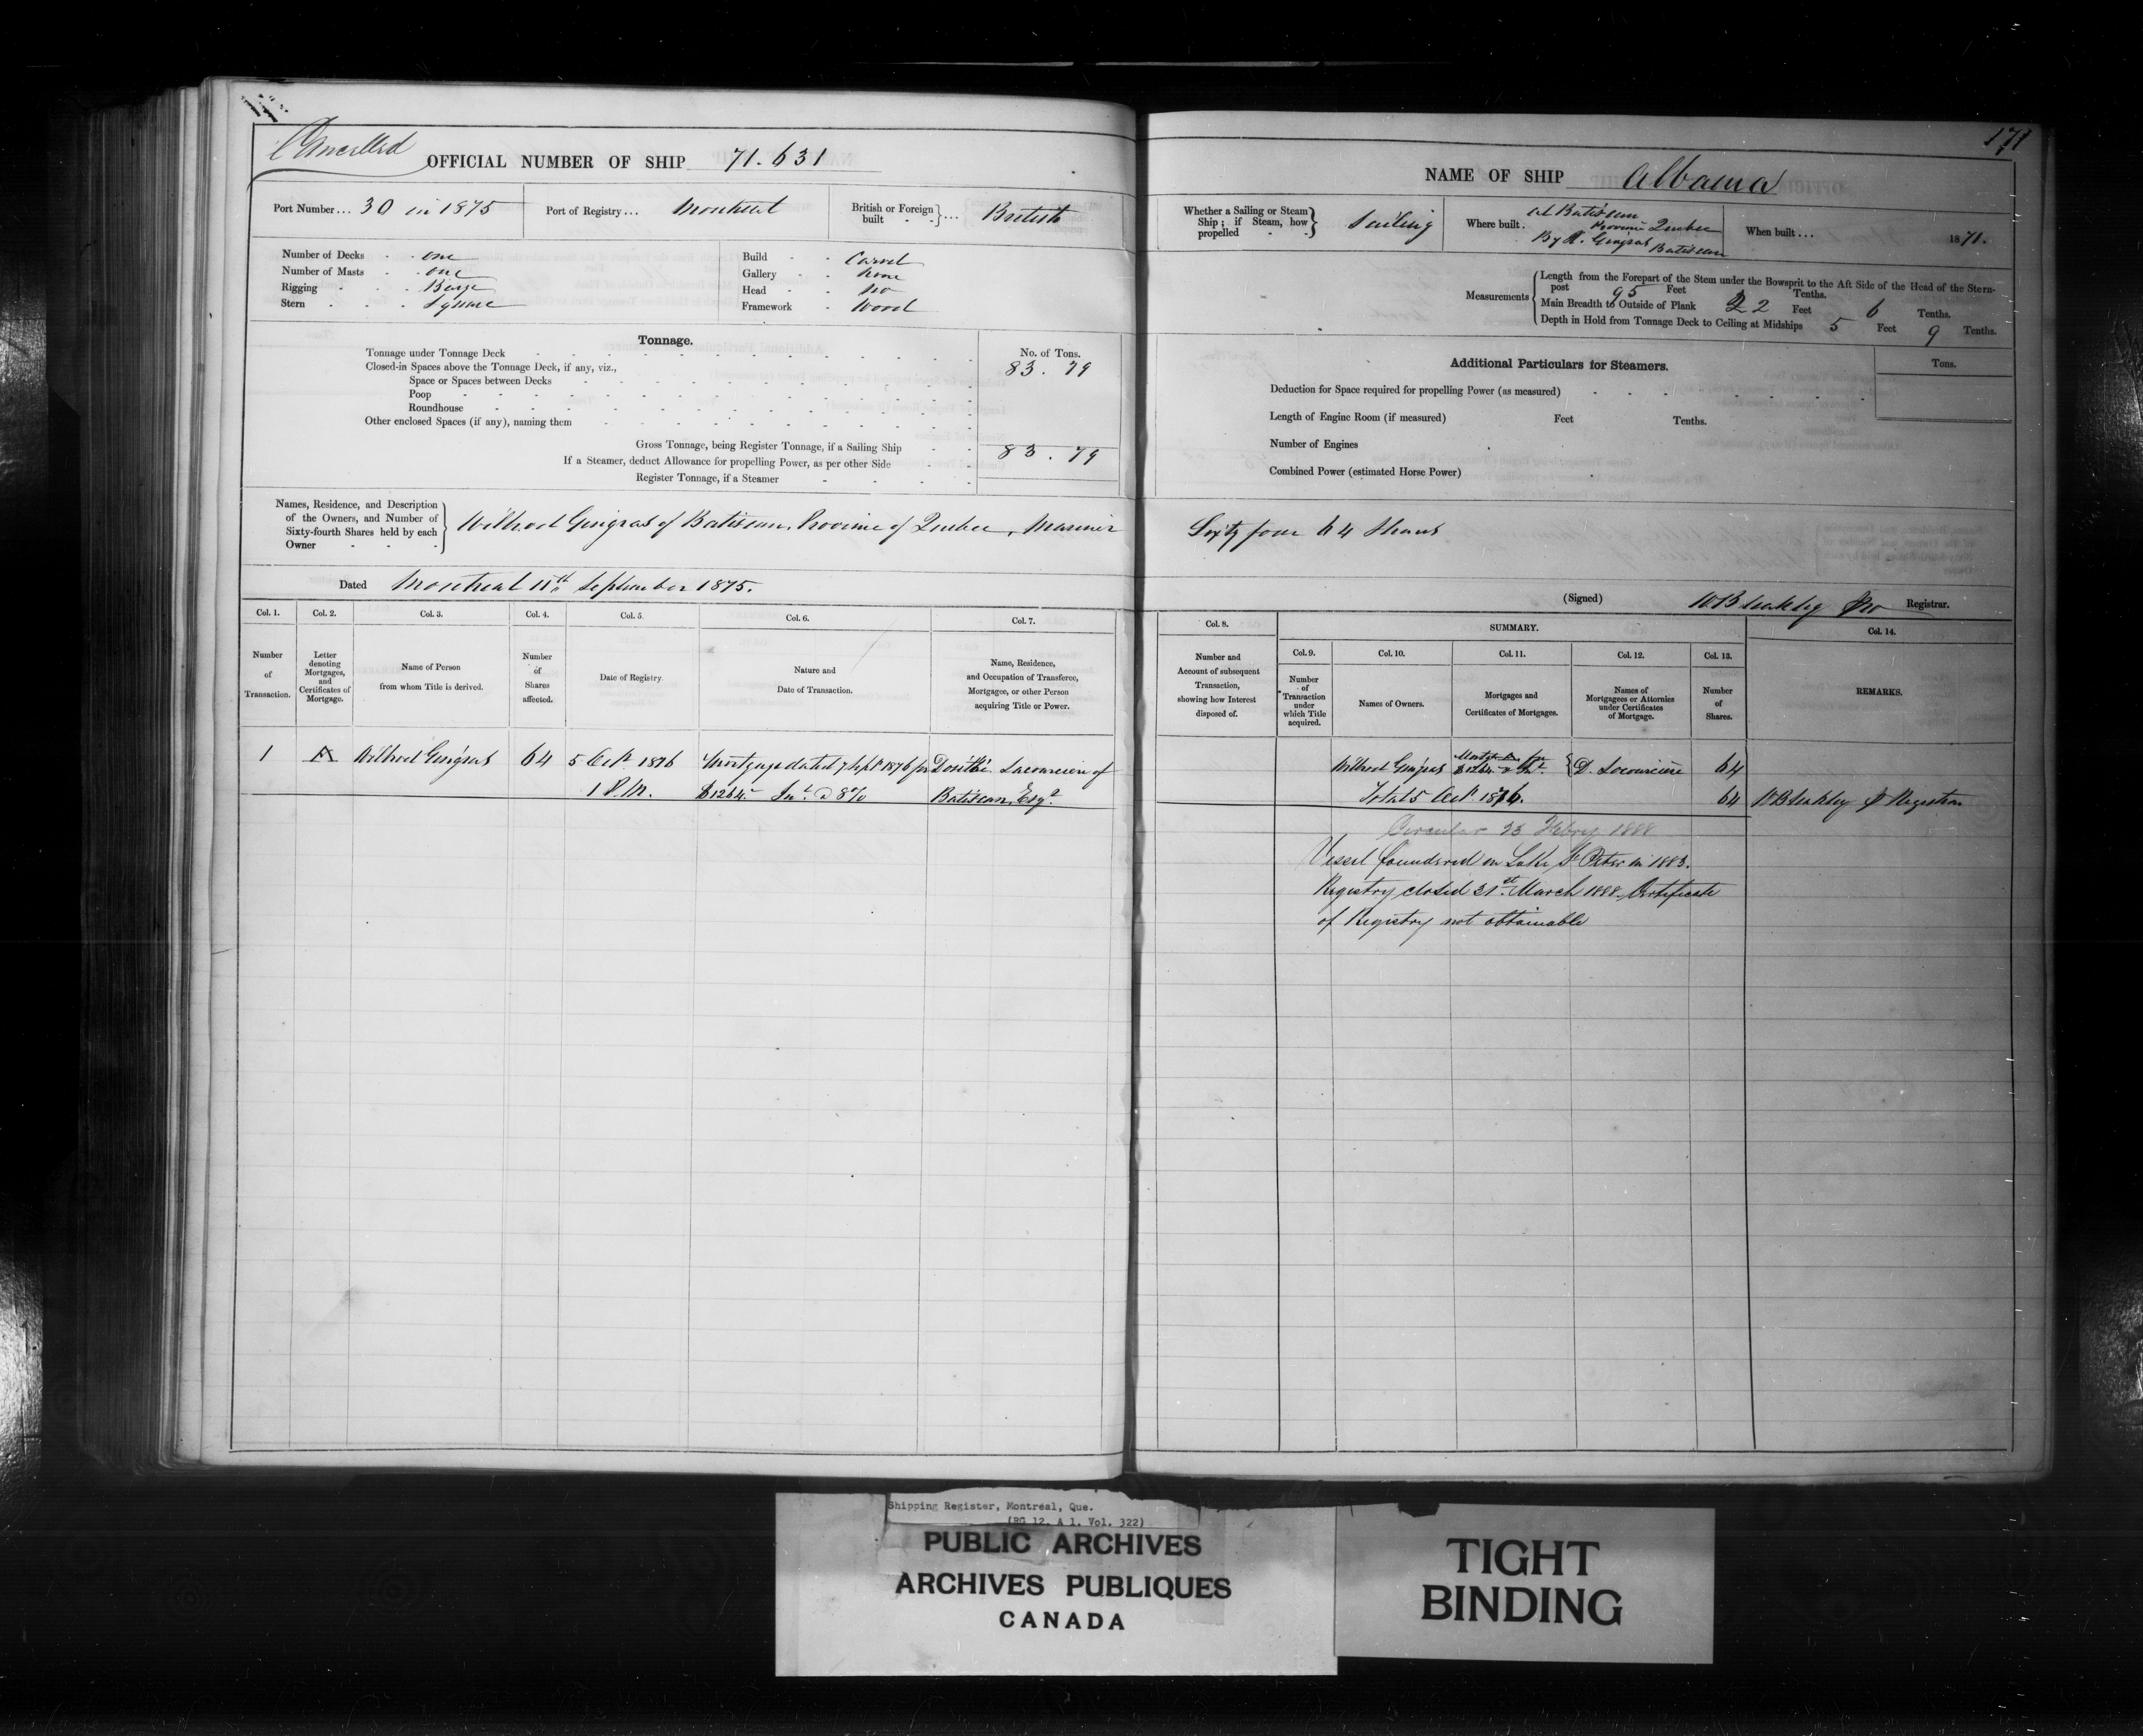 Cancelled
OFFICIAL NUMBER OF SHIP 71.631
Port Number... 30 in 1875
Port of Registry... Montreal
British or Foreign built ... British
Number of Decks - - one
Number of Masts - - one
Rigging - - - Barge
Stern - - - Square
Build - - Carvel
Gallery - - None
Head - - No
Framework - Wood
Tonnage.
No. of Tons.
Tonnage under Tonnage Deck 83.79
Closed-in Spaces above the Tonnage Deck, if any, viz.,
Space or Spaces between Decks
Poop
Roundhouse
Other enclosed Spaces (if any), naming them
Gross Tonnage, being Register Tonnage, if a Sailing Ship 83.79
If a Steamer, deduct Allowance for propelling Power, as per other Side
Register Tonnage, if a Steamer
Names, Residence, and Description
of the Owners, and Number of
Sixty-fourth Shares held by each
Owner
Gingras of Batiscan, Province of Quebec, Mariner
Dated Montreal 11th September 1875.
Col. 1. Col. 2. Col. 3. Col. 4. Col. 5. Col. 6. Col. 7.
Number of Transaction.
Letter denoting Mortgages, and Certificates of Mortgage.
Name of Person from whom Title is derived.
Number of Shares affected.
Date of Registry.
Nature and Date of Transaction.
Name, Residence, and Occupation of Transferee, Mortgagee, or other Person acquiring Title or Power.
1 A Gingras 64 5 Octr 1876 Mortgage dated 7 Sept 1876 for Dosithé Lacourcière of
1 P.M. $1264.- Int. @ 8% Batiscan, Esqr.
171
NAME OF SHIP Albama
Whether a Sailing or Steam
Ship; if Steam, how
propelled
Sailing
Where built. at Batiscan
Province Quebec
By Gingras Batiscan
When built... 1871.
Measurements
Length from the Forepart of the Stem under the Bowsprit to the Aft Side of the Head of the Stern-
post 95 Feet Tenths.
Main Breadth to Outside of Plank 22 Feet 6 Tenths.
Depth in Hold from Tonnage Deck to Ceiling at Midships 5 Feet 9 Tenths.
Additional Particulars for Steamers.
Tons.
Deduction for Space required for propelling Power (as measured)
Length of Engine Room (if measured) Feet Tenths.
Number of Engines
Combined Power (estimated Horse Power)
Sixty four 64 Shares
(Signed) W Bleakley Registrar.
Col. 8. SUMMARY. Col. 14.
Col. 9. Col. 10. Col. 11. Col. 12. Col. 13.
Number and Account of subsequent Transaction, showing how Interest disposed of.
Number of Transaction under which Title acquired.
Names of Owners.
Mortgages and Certificates of Mortgages.
Names of Mortgagees or Attornies under Certificates of Mortgage.
Number of Shares.
REMARKS.
Gingras Mortge A for $1264 & Int. D. Lacourcière 64
Total 5 Octr 1876. 64 W Bleakley Registrar
Circular 23 Febry 1888
Vessel foundered on Lake St Peter in 1883.
Registry closed 31st March 1888. Certificate
of Registry not obtainable
Shipping Register, Montreal, Que.
(RG 12, A 1, Vol. 322)
PUBLIC ARCHIVES
ARCHIVES PUBLIQUES
CANADA
TIGHT
BINDING